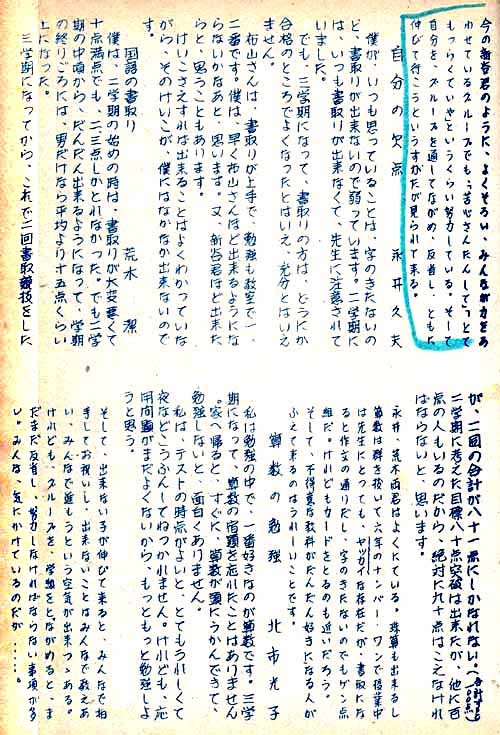 今の新谷君のように、よくそろい、みんなが力をあ
わせているグループでも、"苦心さんたんして"とて
もつらくていや"というくらい努力している。そして
自分を、グループを通してながめ、反省し、ともに
伸びて行こうというすがたが見られて来る。
自分の欠点　永井久夫
僕が、いつも思っていることは、字のきたないの
と、書取りが出来ないので弱っています。二学期に
は、いつも書取りが出来なくて、先生に注意されて
いました。
でも、三学期になって、書取りの方は、どうにか
合格のところでよくなったとはいえ、充分とはいえ
ません。
布山さんは、書取りが上手で、勉強も教室で一、
二番です。僕は、早く布山さんほど出来るようにな
らないかなあと、思います。又、新谷君ほど出来た
らと、思うこともあります。
けいこさえすれば出来ることはよくわかっていな
がら、そのけいこが、僕にはなかなか出来ないので
す。
国語の書取り　荒木潔
僕は、二学期の始めの時は、書取りが大変悪くて
十点満点でも、二、三点しかとれなかった。でも二学
期の中頃から、だんだん出来るようになって、学期
の終りごろには、男だけなら平均より十五点くらい
上になった。
三学期になってから、これで二回書取競技をした
が、二回の合計が八十一点にしかなれない。(合計すると100点)
二学期に考えた目標八十点突破は出来たが、他に百
点の人もいるのだから、絶対に九十点はこえなけれ
ばならないと、思います。
永井、荒木両君はよくにている。珠算も出来るし
算数は群を抜いて六年のナンバー・ワンで授業中
は先生にとっても、ヤッカイな存在だが、書取にな
ると作文の通りだし、字のきたないのでもゲン点
組だ。けれどもカードをとるのも近いだろう。
そして、不得意な教科がだんだん好きになる人が
ふえて来るのはうれしいことです。
算数の勉強　北市光子
私は勉強の中で、一番好きなのが算数です。三学
期になって、算数の宿題を忘れたことはありません
。家へ帰ると、すぐに、算数が頭にうかんできて、
勉強しないと、面白くありません。
私は、テストの時点がよいと、とてもうれしくて
夜などこうふんしてねつかれません。けれども、応
用問題がまだよくないから、もっともっと勉強しよ
うと思う。
そして、出来ない子が伸びて来ると、みんなで拍
手してお祝いし、出来ないことはみんなで教えあ
い、みんなで進もうという空気が出来つつある。
けれども、グループを、学級をとながめると、ま
だまだ反省し、努力しなければならない事項が多
い。みんな、気にかけているのだが……。